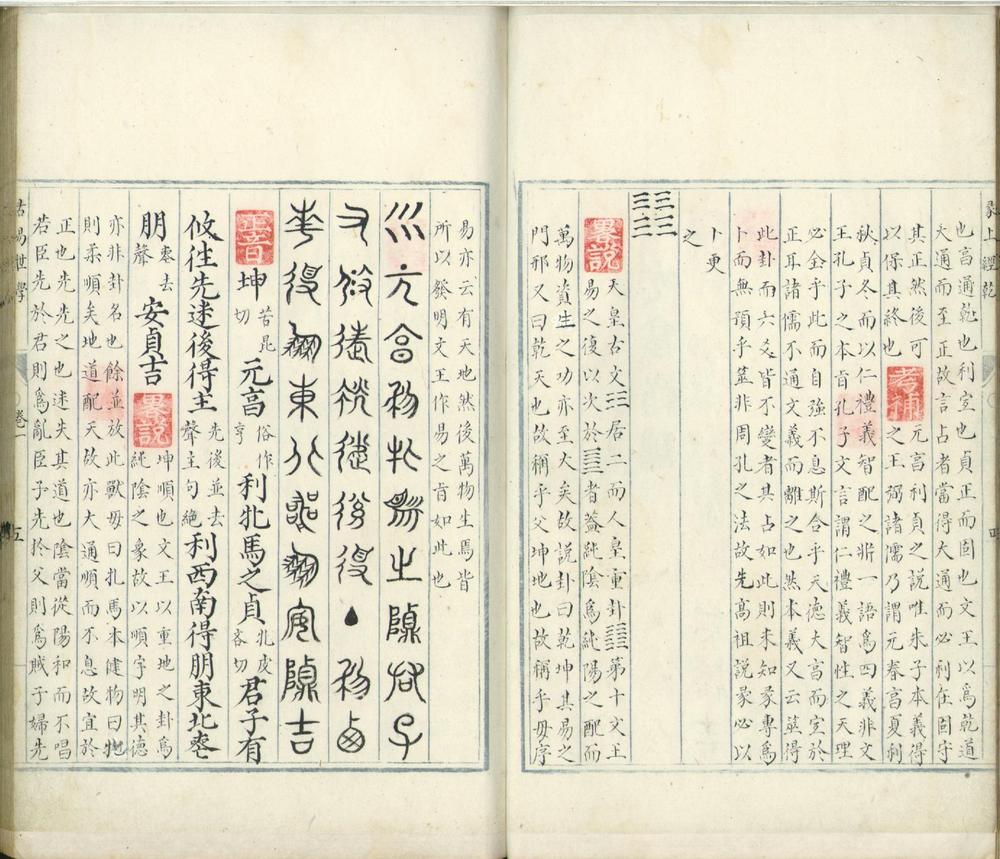 彖上經乾
也亨通乾也利宜也貞正而固也文王以爲乾道
大通而至正故言占者當得大通而必利在固守
其正然後可
以保其終也
考補
元亨利貞之説唯朱子本義得
之王弼諸儒乃謂元春亨夏利
秋貞冬而以仁禮義智配之斯一語爲四義非文
王孔子之本旨孔子文言謂仁禮義智性之天理
必全乎此而自強不息斯合乎天德大亨而宜於
正耳諸儒不通文義而離之也然本義又云筮得
此卦而六爻皆不變者其占如此則未知彖專爲
卜而無預乎筮非周孔之法故先高祖説彖必以
卜更
之
畧説
天皇古文居二而人皇重卦第十文王
易之復以次於者葢純陰爲純陽之配而
萬物資生之功亦至大矣故説卦曰乾坤其易之
門邪又曰乾天也故稱乎父坤地也故稱乎母序
易亦云有天地然後萬物生焉皆
所以發明文王作易之旨如此也
正音
坤
苦昆
切
元亨
俗作
亨
利牝馬之貞
牝皮
吝切
君子有
攸往先迷後得主
先後並去
聲主句絶
利西南得朋東北䘮
朋
䘮去
聲
安貞吉
畧説
坤順也文王以重地之卦爲
純陰之象故以順字明其德
亦非卦名也餘並放此獸母曰牝馬本健物曰牝
則柔順矣地道配天故亦大通順而不息故宜於
正也先先之也迷失其道也陰當從陽和而不唱
若臣先於君則爲亂臣子先於父則爲賊子婦先
古易世學
卷一
五